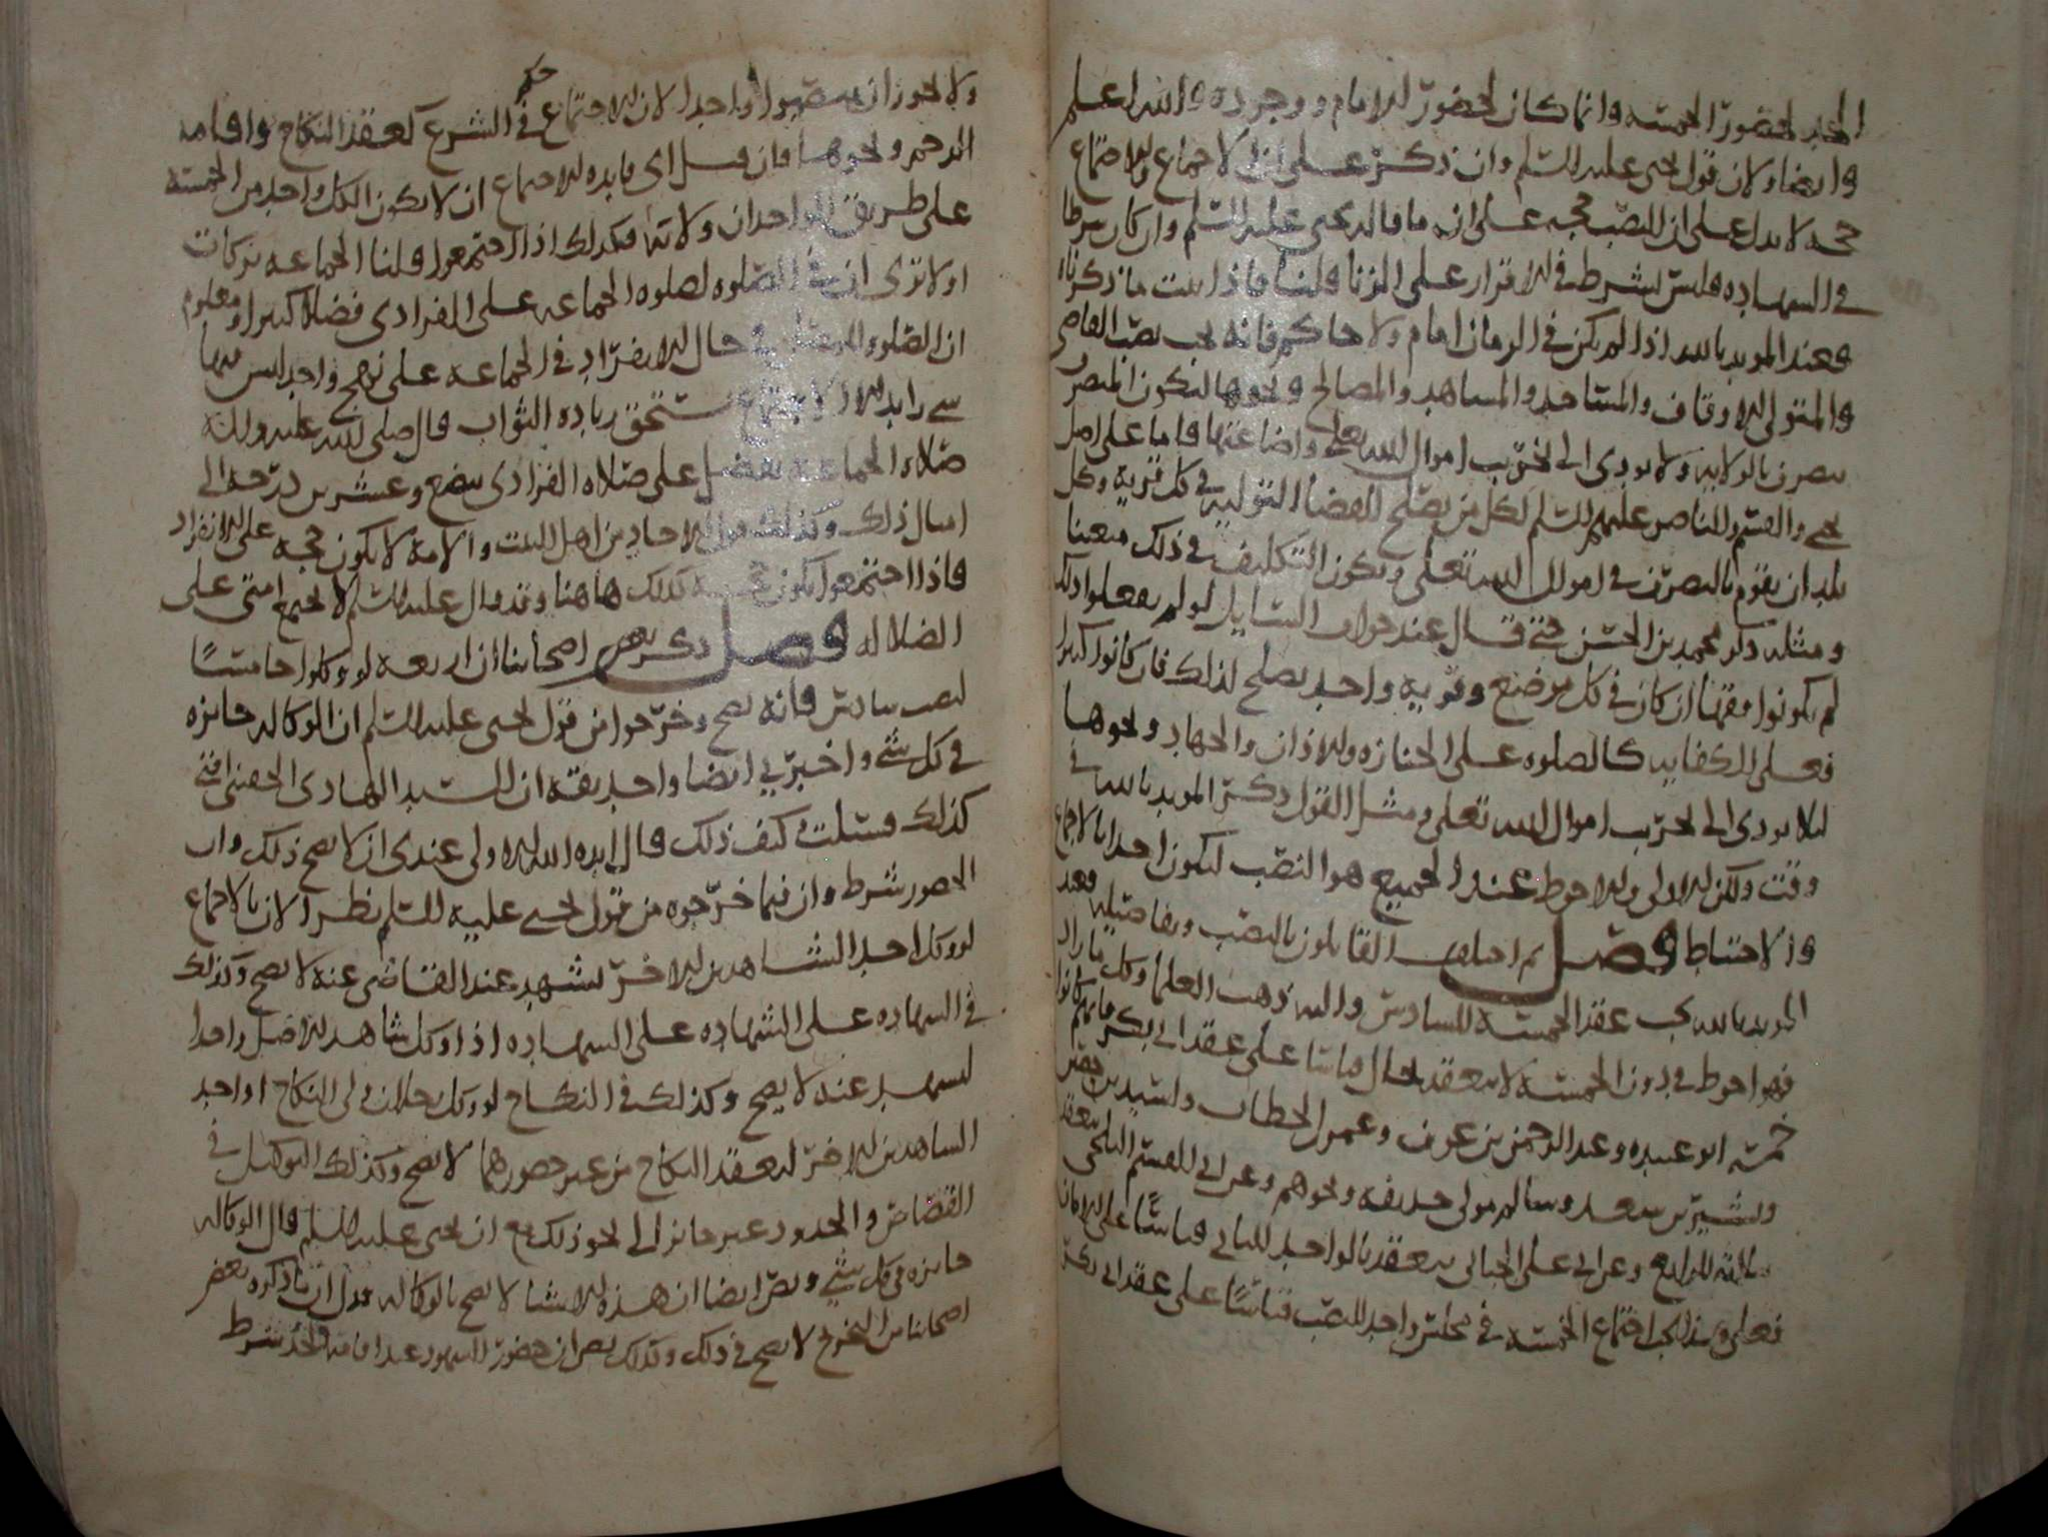 الحد لحضور الخمسه وانما كان الحضور للامام ووجوده والله اعلم
وايضا ولان قول يحيى عليه السلم وان ذكر على ان الاجماع والاجتماع
حجه لا يدل على ان النصب حجه على انه ما قاله يحيى عليه السلم وان كان شرطا
في الشهاده فليس بشرط في الاقرار على الزنا قلنا فاذا ثبت ما ذكرنا
فعند المويد بالله اذا لم يكن في الزمان امام ولا حاكم فانه يجب نصب القاضي
والمتولي للاوقاف والمساجد والمساهد والمصالح ونحوها ليكون المتصرف
يتصرف بالولايه ولا يودي الى تخريب اموال الله تعلى واضاعتها فاما على اصل
يحيى والقسم والناصر عليهم السلم لكل من يصلح للقضا التوليه في كل قرية وكل
بلد ان يقوم بالتصرف في اموال الله تعلى ويكون التكليف في ذلك متعينا
ومثله ذكر محمد بن الحسن حتى قال عند جواب السايل لو لم يفعلوا ذلك
لم يكونوا فقها ان كان في كل موضع وقرية واحد يصلح لذلك فان كانوا كثيرا
فعلى الكفايه كالصلوه على الجنازه والاذان والجهاد ونحوها
ليلا يودي الى تخريب اموال الله تعلى ومثل القول ذكر المويد بالله في
وقت ولكن الاولى والاحوط عند الجميع هو النصب ليكون احدا بالاجماع
والاحتياط فصل ثم اختلف القايلون بالنصب وتفاصيله فعند
المويد بالله يجب عقد الخمسة للسادس واليه ذهب العلما وكل ما زاد
فهو احوط في دون الخمسة لا ينعقد بحال قياسا على عقد ابي بكر فانهم كانوا
خمسه ابو عبيده وعبد الرحمن بن عوف وعمر بن الخطاب واسيد بن حضير
وبشير بن سعد وسالم مولى حذيفه ونحوهم وعن ابي القسم البلخي ينعقد
بثلثة للرابع وعن ابي علي الجبائي ينعقد بالواحد للثاني قياسًا على الامان
فعلى هذا يجب اجتماع الخمسة في مجلس واحد للنصب قياسًا على عقد ابي بكر
ولا يجوز ان ينصبوا واحدا لان للاجتماع حكم في الشرع كعقد النكاح واقامه
الرجم ونحوها فان قيل اى فايده للاجتماع ان لا يكون الكل واحد من الخمسة
على طريق الواحدان ولايه فكذلك اذا اجتمعوا قلنا الجماعه بركات
اولا ترى ان في الصلوه لصلوه الجماعه على الفرادى فضلا كبيرا ومعلوم
ان الصلوه في حال الانفراد في الجماعه على نهج واحد ليس فيها
شي زايد الا الاجتماع يستحق زياده الثواب قال صلى الله عليه واله
صلاه الجماعه تفضل على صلاه الفرادى ببضع وعشرين درجه الى
امثال ذلك وكذلك قول الاحاد من اهل البيت والامة لا يكون حجه على الانفراد
فاذا اجتمعوا يكون حجة كذلك هاهنا وقد قال عليه السلم لا تجتمع امتي على
الضلاله فصل ذكر بعض اصحابنا ان اربعه لو وكلوا خامسًا
لنصب سادس فانه يصح وخرجوا من قول يحيى عليه السلم ان الوكاله جايزه
في كل شي واخبرني ايضا واحد بقه ان السيد الهادى الحقيني افتى
كذلك فسئلت كيف ذلك قال ايده الله الاولى عندي ان لا يصح ذلك وان
الحضور شرط وان فيما خرجوه من قول يحيى عليه السلم نظرا لان بالاجماع
لو وكل احد الشاهدين الاخر ليشهد عند القاضي عنه لا يصح وكذلك
في الشهاده على الشهاده على الشهاده اذا وكل شاهد الاصل واحدا
ليشهد عنه لا يصح وكذلك في النكاح لو وكل رجلان ولي النكاح او احد
الشاهدين الاخر ليعقد النكاح من غير حضورهما لا يصح وكذلك التوكيل في
القصاص والحدود غير جايز الى نحو ذلك مع ان يحيى عليه السلم قال الوكاله
جايزه في كل شي ونص ايضا ان هذه الاشيا لا يصح بالوكاله فدل ان ما ذكره بعض
اصحابنا من التخريج لا يصح في ذلك وكذلك نص ان حضور الشهود عند اقامة الحد شرط